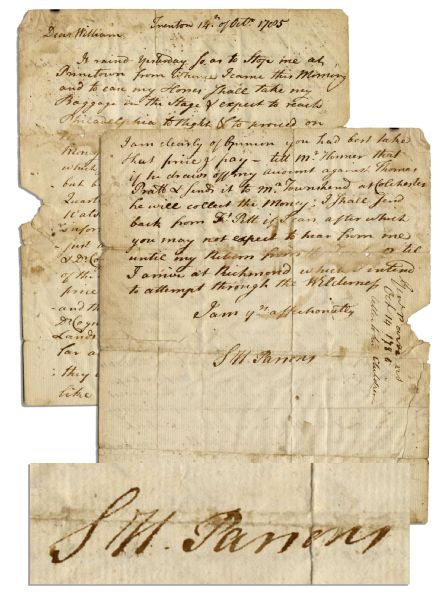 Trenton 14th of Octr. 1785
Dear William.
It raind Yesterday so as to Stope me at
Princetown from whence I came this Morning
and to ease my Horses Shall take my
Baggage in the Stage & expect to reach
Philadelphia to Night & to proceed on
Mon
which
but b
Quart
- just
& Dr. Co
of the
price
- and th
Dr. Coyn
Lands
far a
they
like
I am clearly of Opinion you had best take
that price & pay – tell Mr. Hosmer that
if he draws off my account against Thomas
Pratt & sends it to Mr. Townshend at Colchester
he will collect the Money; I shall send
back from Ft. Pitt if I can after which
you may not expect to hear from me
until my Return from or til
I arrive at Richmond which I intend
to attempt through the Wilderness
I am yrs affectionately
S H. Parsons
Genl Parsons
Oct 14 1786
to his Children
S H. Parsons